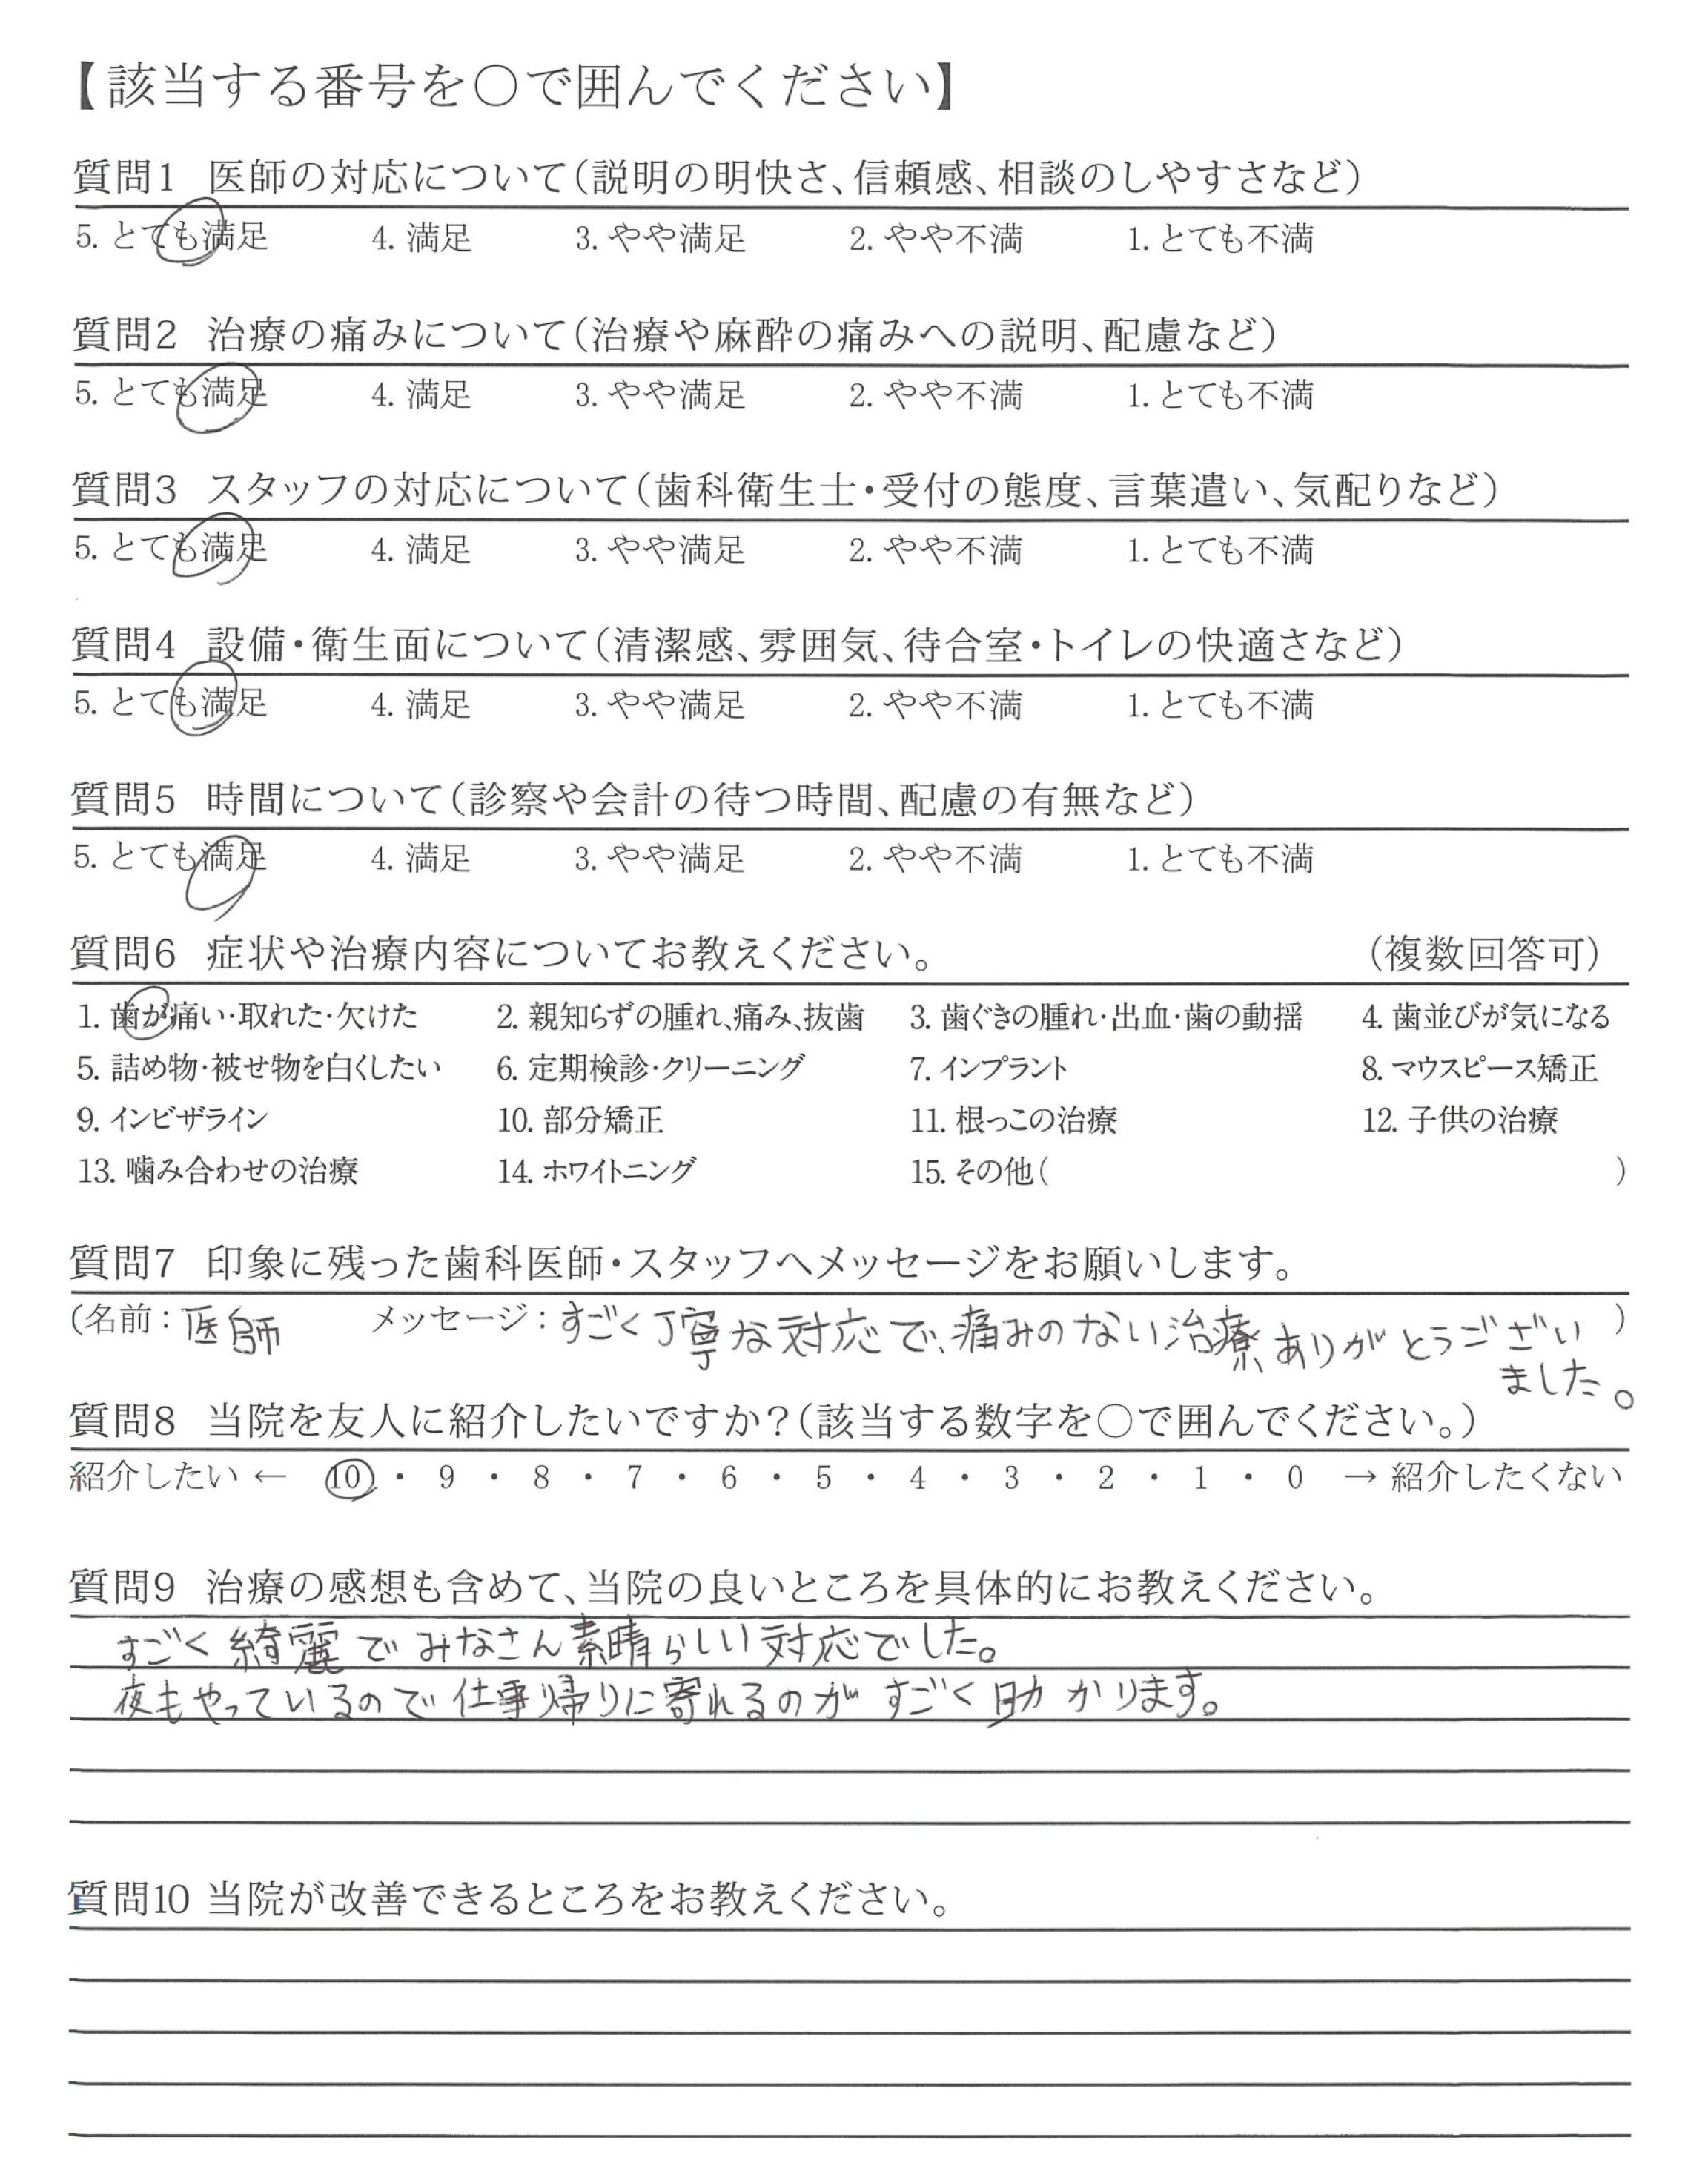 【該当する番号を〇で囲んでください】
質問1 医師の対応について(説明の明快さ、信頼感、相談のしやすさなど)
5. とても満足 4. 満足 3. やや満足 2. やや不満 1. とても不満
質問2 治療の痛みについて(治療や麻酔の痛みへの説明、配慮など)
5. とても満足 4. 満足 3. やや満足 2. やや不満 1. とても不満
質問3 スタッフの対応について(歯科衛生士・受付の態度、言葉遣い、気配りなど)
5. とても満足 4. 満足 3. やや満足 2. やや不満 1. とても不満
質問4 設備・衛生面について(清潔感、雰囲気、待合室・トイレの快適さなど)
5. とても満足 4. 満足 3. やや満足 2. やや不満 1. とても不満
質問5 時間について(診察や会計の待つ時間、配慮の有無など)
5. とても満足 4. 満足 3. やや満足 2. やや不満 1. とても不満
質問6 症状や治療内容についてお教えください。 (複数回答可)
1. 歯が痛い・取れた・欠けた 2. 親知らずの腫れ、痛み、抜歯 3. 歯ぐきの腫れ・出血・歯の動揺 4. 歯並びが気になる
5. 詰め物・被せ物を白くしたい 6. 定期検診・クリーニング 7. インプラント 8. マウスピース矯正
9. インビザライン 10. 部分矯正 11. 根っこの治療 12. 子供の治療
13. 噛み合わせの治療 14. ホワイトニング 15. その他( )
質問7 印象に残った歯科医師・スタッフへメッセージをお願いします。
(名前:医師 メッセージ:すごく丁寧な対応で、痛みのない治療ありがとうござい )
ました。
質問8 当院を友人に紹介したいですか?(該当する数字を〇で囲んでください。)
紹介したい ← 10 ・ 9 ・ 8 ・ 7 ・ 6 ・ 5 ・ 4 ・ 3 ・ 2 ・ 1 ・ 0 → 紹介したくない
質問9 治療の感想も含めて、当院の良いところを具体的にお教えください。
すごく綺麗でみなさん素晴らしい対応でした。
夜もやっているので仕事帰りに寄れるのがすごく助かります。
質問10 当院が改善できるところをお教えください。